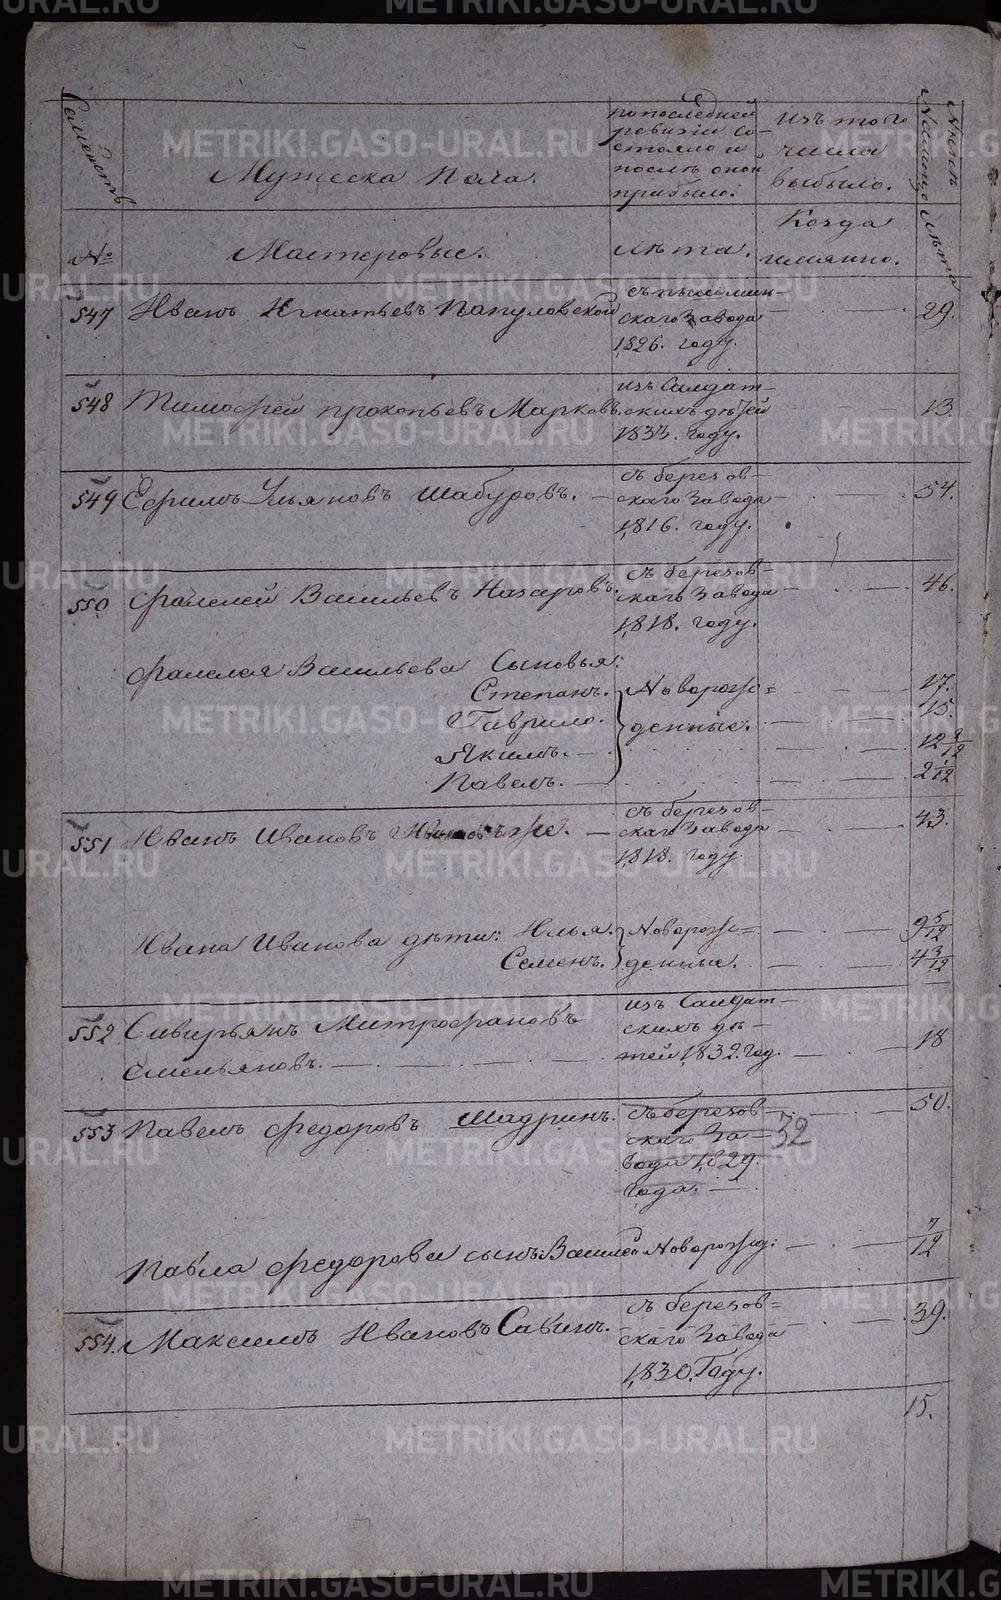 Семействъ
Мужеска Пола.
по последней
ревизіи со-
стояло и
послѣ оной
прибыло.
изъ того
числа
выбыло.
Нынѣ
на лицо
№
Мастеровые.
лѣта.
Когда
имянно.
лѣта
547 Иванъ Игнатьевъ Папуловской
съ пышмин-
скаго Завода
1826. году.
29.
548 Тимофей прокопьевъ Марковъ.
изъ Салдат-
скихъ дѣтей
1833. году.
13.
549 Ефимъ Ульяновъ Шабуровъ.
съ березов-
скаго Завода
1816. году.
54.
550 Фалелей Васильевъ Назаровъ.
съ березов-
скаго Завода
1818. году.
46.
Фалелея Васильева Сыновья:
Степанъ. Новорож= 17.
Гаврило. денные. 15.
Якимъ. 12 2/12
Павелъ. 2 1/12
551 Иванъ Ивановъ
съ березов-
скаго Завода
1818. году.
43.
Ивана Иванова дѣти: Илья. Новорож= 9 5/12
Семенъ. денные. 4 3/12
552 Сиверьянъ Митрофановъ
Емельяновъ.
изъ Салдат-
скихъ дѣ-
тей 1832. год.
18
553 Павелъ Федоровъ Шадринъ.
съ березов-
скаго За-
вода 1829.
года.
32
50.
Павла Федорова сынъ: Василей Новорожд: 7/12
554. Максимъ Ивановъ Савинъ.
съ березов=
скаго Завода
1830. Году.
39.
15.
METRIKI.GASO-URAL.RU